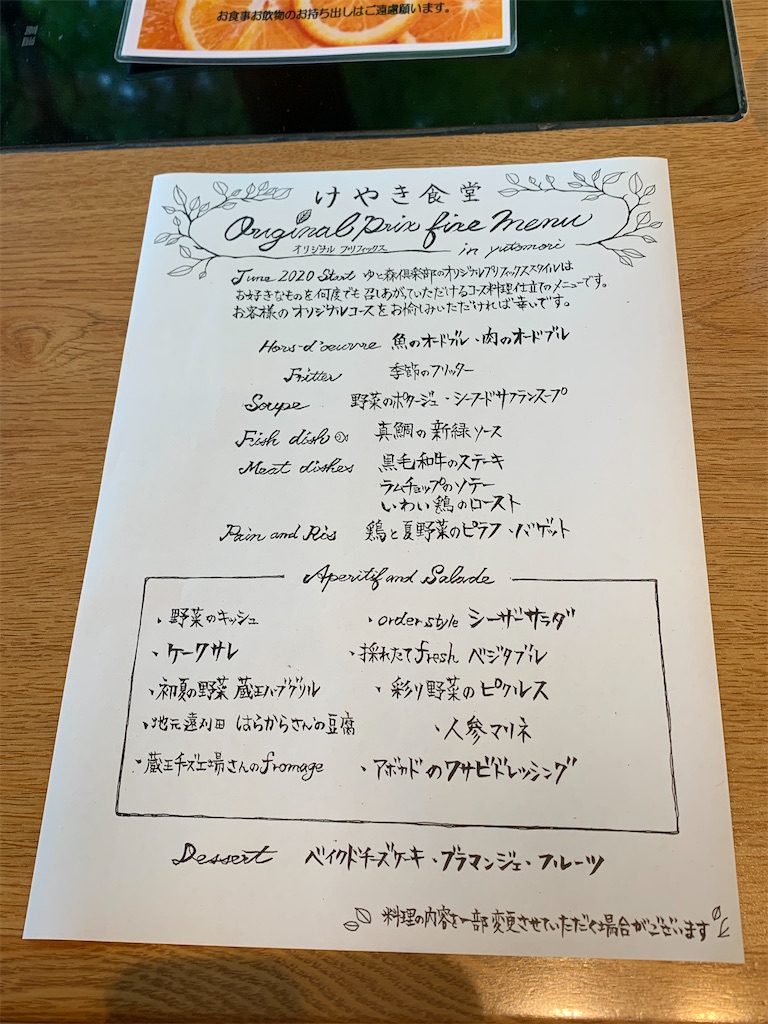 お食事お飲物のお持ち出しはご遠慮願います。
けやき食堂
Original Prix fixe Menu
オリジナル プリフィックス
in yutomori
June 2020 Start ゆと森倶楽部のオリジナルプリフィックススタイルは
お好きなものを何度でも召しあがっていただけるコース料理仕立てのメニューです。
お客様のオリジナルコースをお愉しみいただければ幸いです。
Hors-d'oeuvre 魚のオードブル・肉のオードブル
Fritter 季節のフリッター
Soupe 野菜のポタージュ・シーフードサフランスープ
Fish dish 真鯛の新緑ソース
Meat dishes 黒毛和牛のステーキ
ラムチョップのソテー
いわい鶏のロースト
Pain and Ris 鶏と夏野菜のピラフ・バゲット
Aperitif and Salade
・野菜のキッシュ ・order style シーザーサラダ
・ケークサレ ・採れたてfresh ベジタブル
・初夏の野菜 蔵王ハーブグリル ・彩り野菜のピクルス
・地元遠刈田 はらからさんの豆腐 ・人参マリネ
・蔵王チーズ工場さんのfromage ・アボカドのワサビドレッシング
Dessert ベイクドチーズケーキ・ブラマンジェ・フルーツ
料理の内容を一部変更させていただく場合がございます